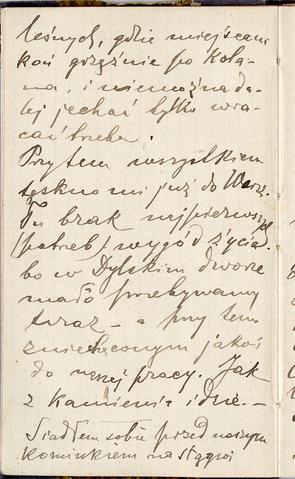 leśnych, gdzie miejscami
koń grzęźnie po Kola-
na, i niemożna da-
lej jechać tylko wra-
cać trzeba.
Przytem wszystkiem
tęskno mi już do Warsz.
Tu brak najpierwszych
(potrzeb) wygód życia.
bo w Dylskim dworze
mało przebywamy
teraz – a przy tem
zniechęconym jakoś
do naszej pracy. Jak
z kamienia idzie. –
Siadłem sobie przed naszym
kominkiem na